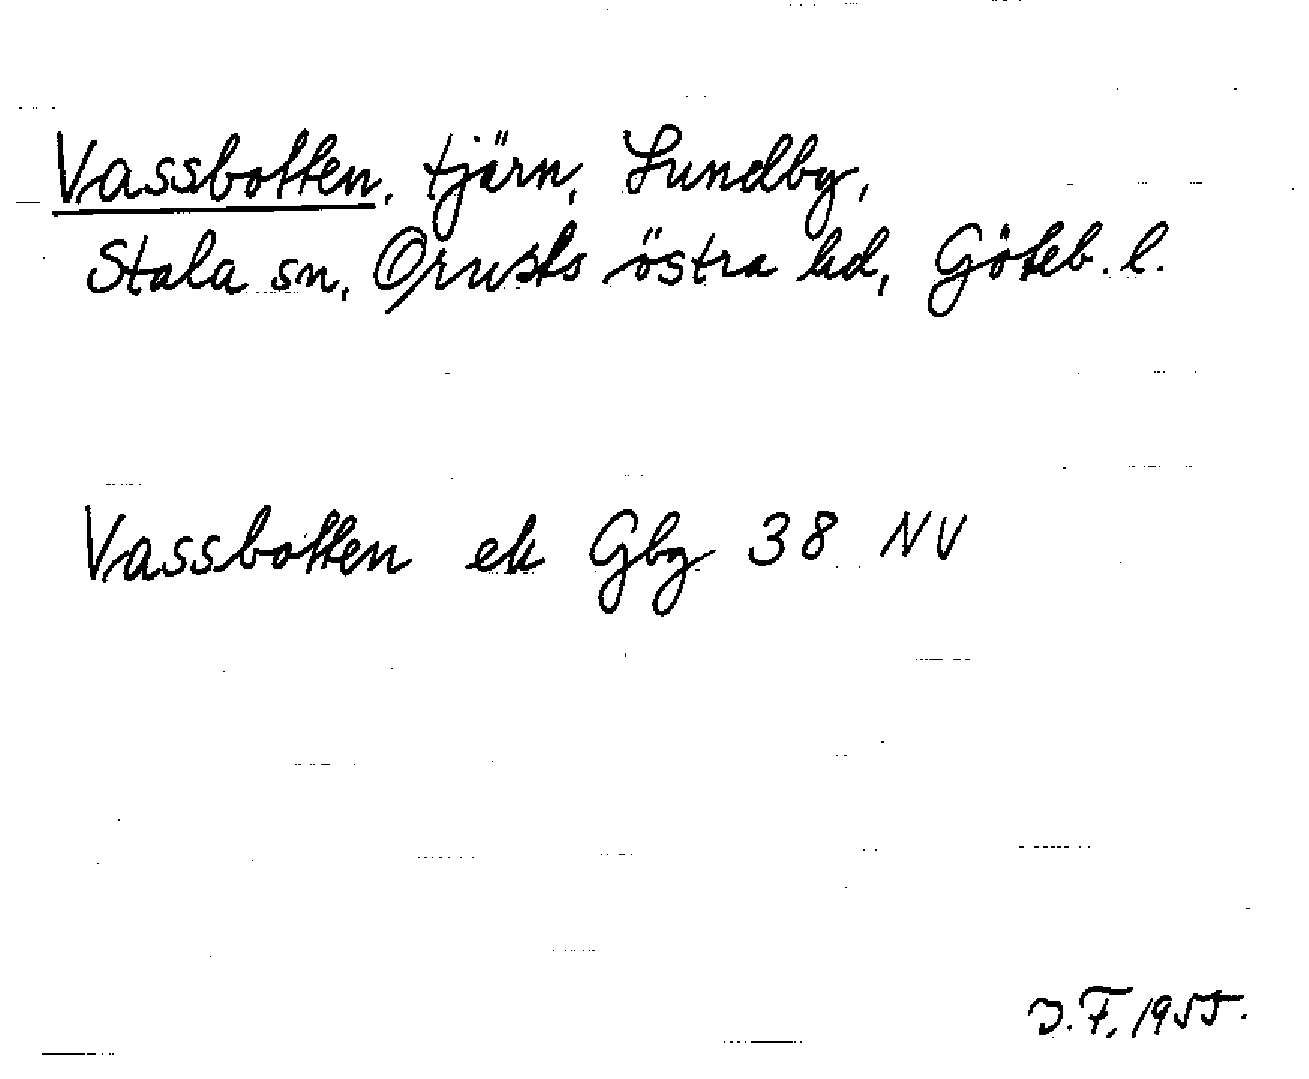 Vassbotten, tjärn, Lundby,
Stala sn, Orusts östra hd, Göteb. l.
Vassbotten ek Gbg 38 NV
J. F. 1955.